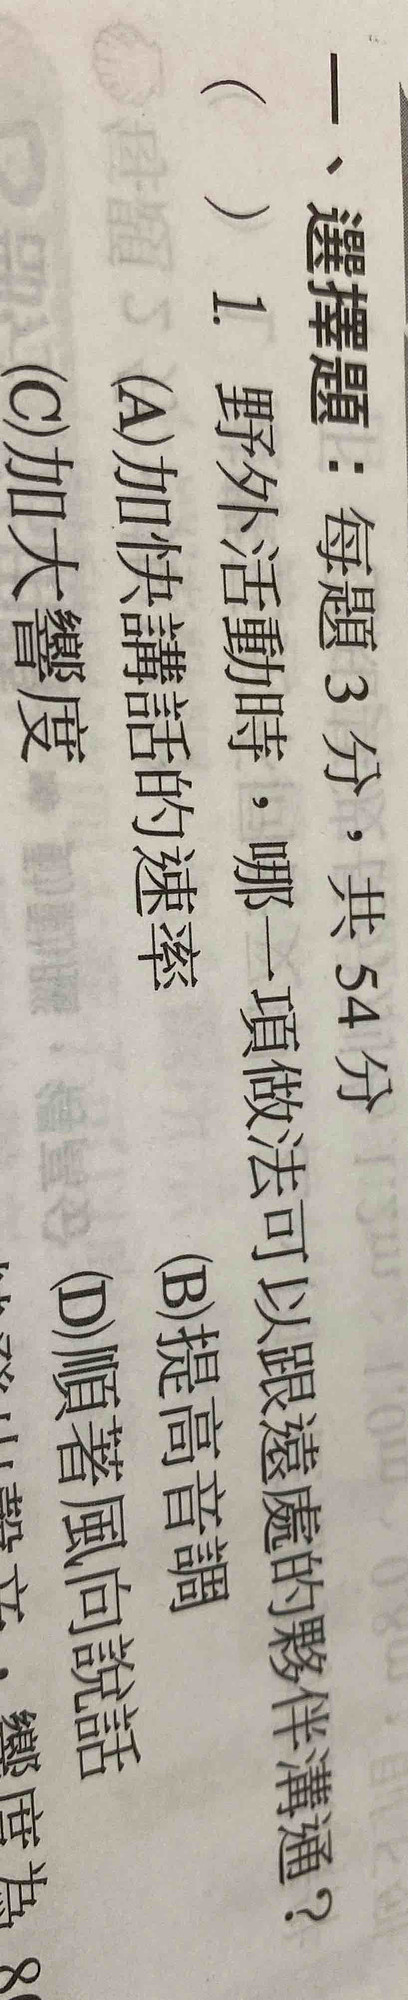 一、選擇題：每題3分，共54分
（　）1. 野外活動時，哪一項做法可以跟遠處的夥伴溝通？
(A)加快講話的速率　(B)提高音調
(C)加大響度　(D)順著風向說話
響度為 80